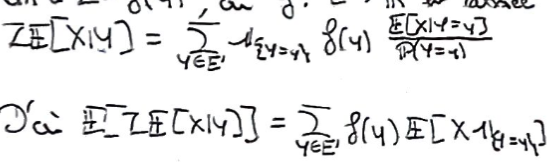 Z𝔼[X|Y] = ∑_{y∈E'} 𝟙_{{Y=y}} g(y) 𝔼[X|Y=y] / ℙ(Y=y)
D'où 𝔼[Z𝔼[X|Y]] = ∑_{y∈E'} g(y) 𝔼[X𝟙_{{Y=y}}]